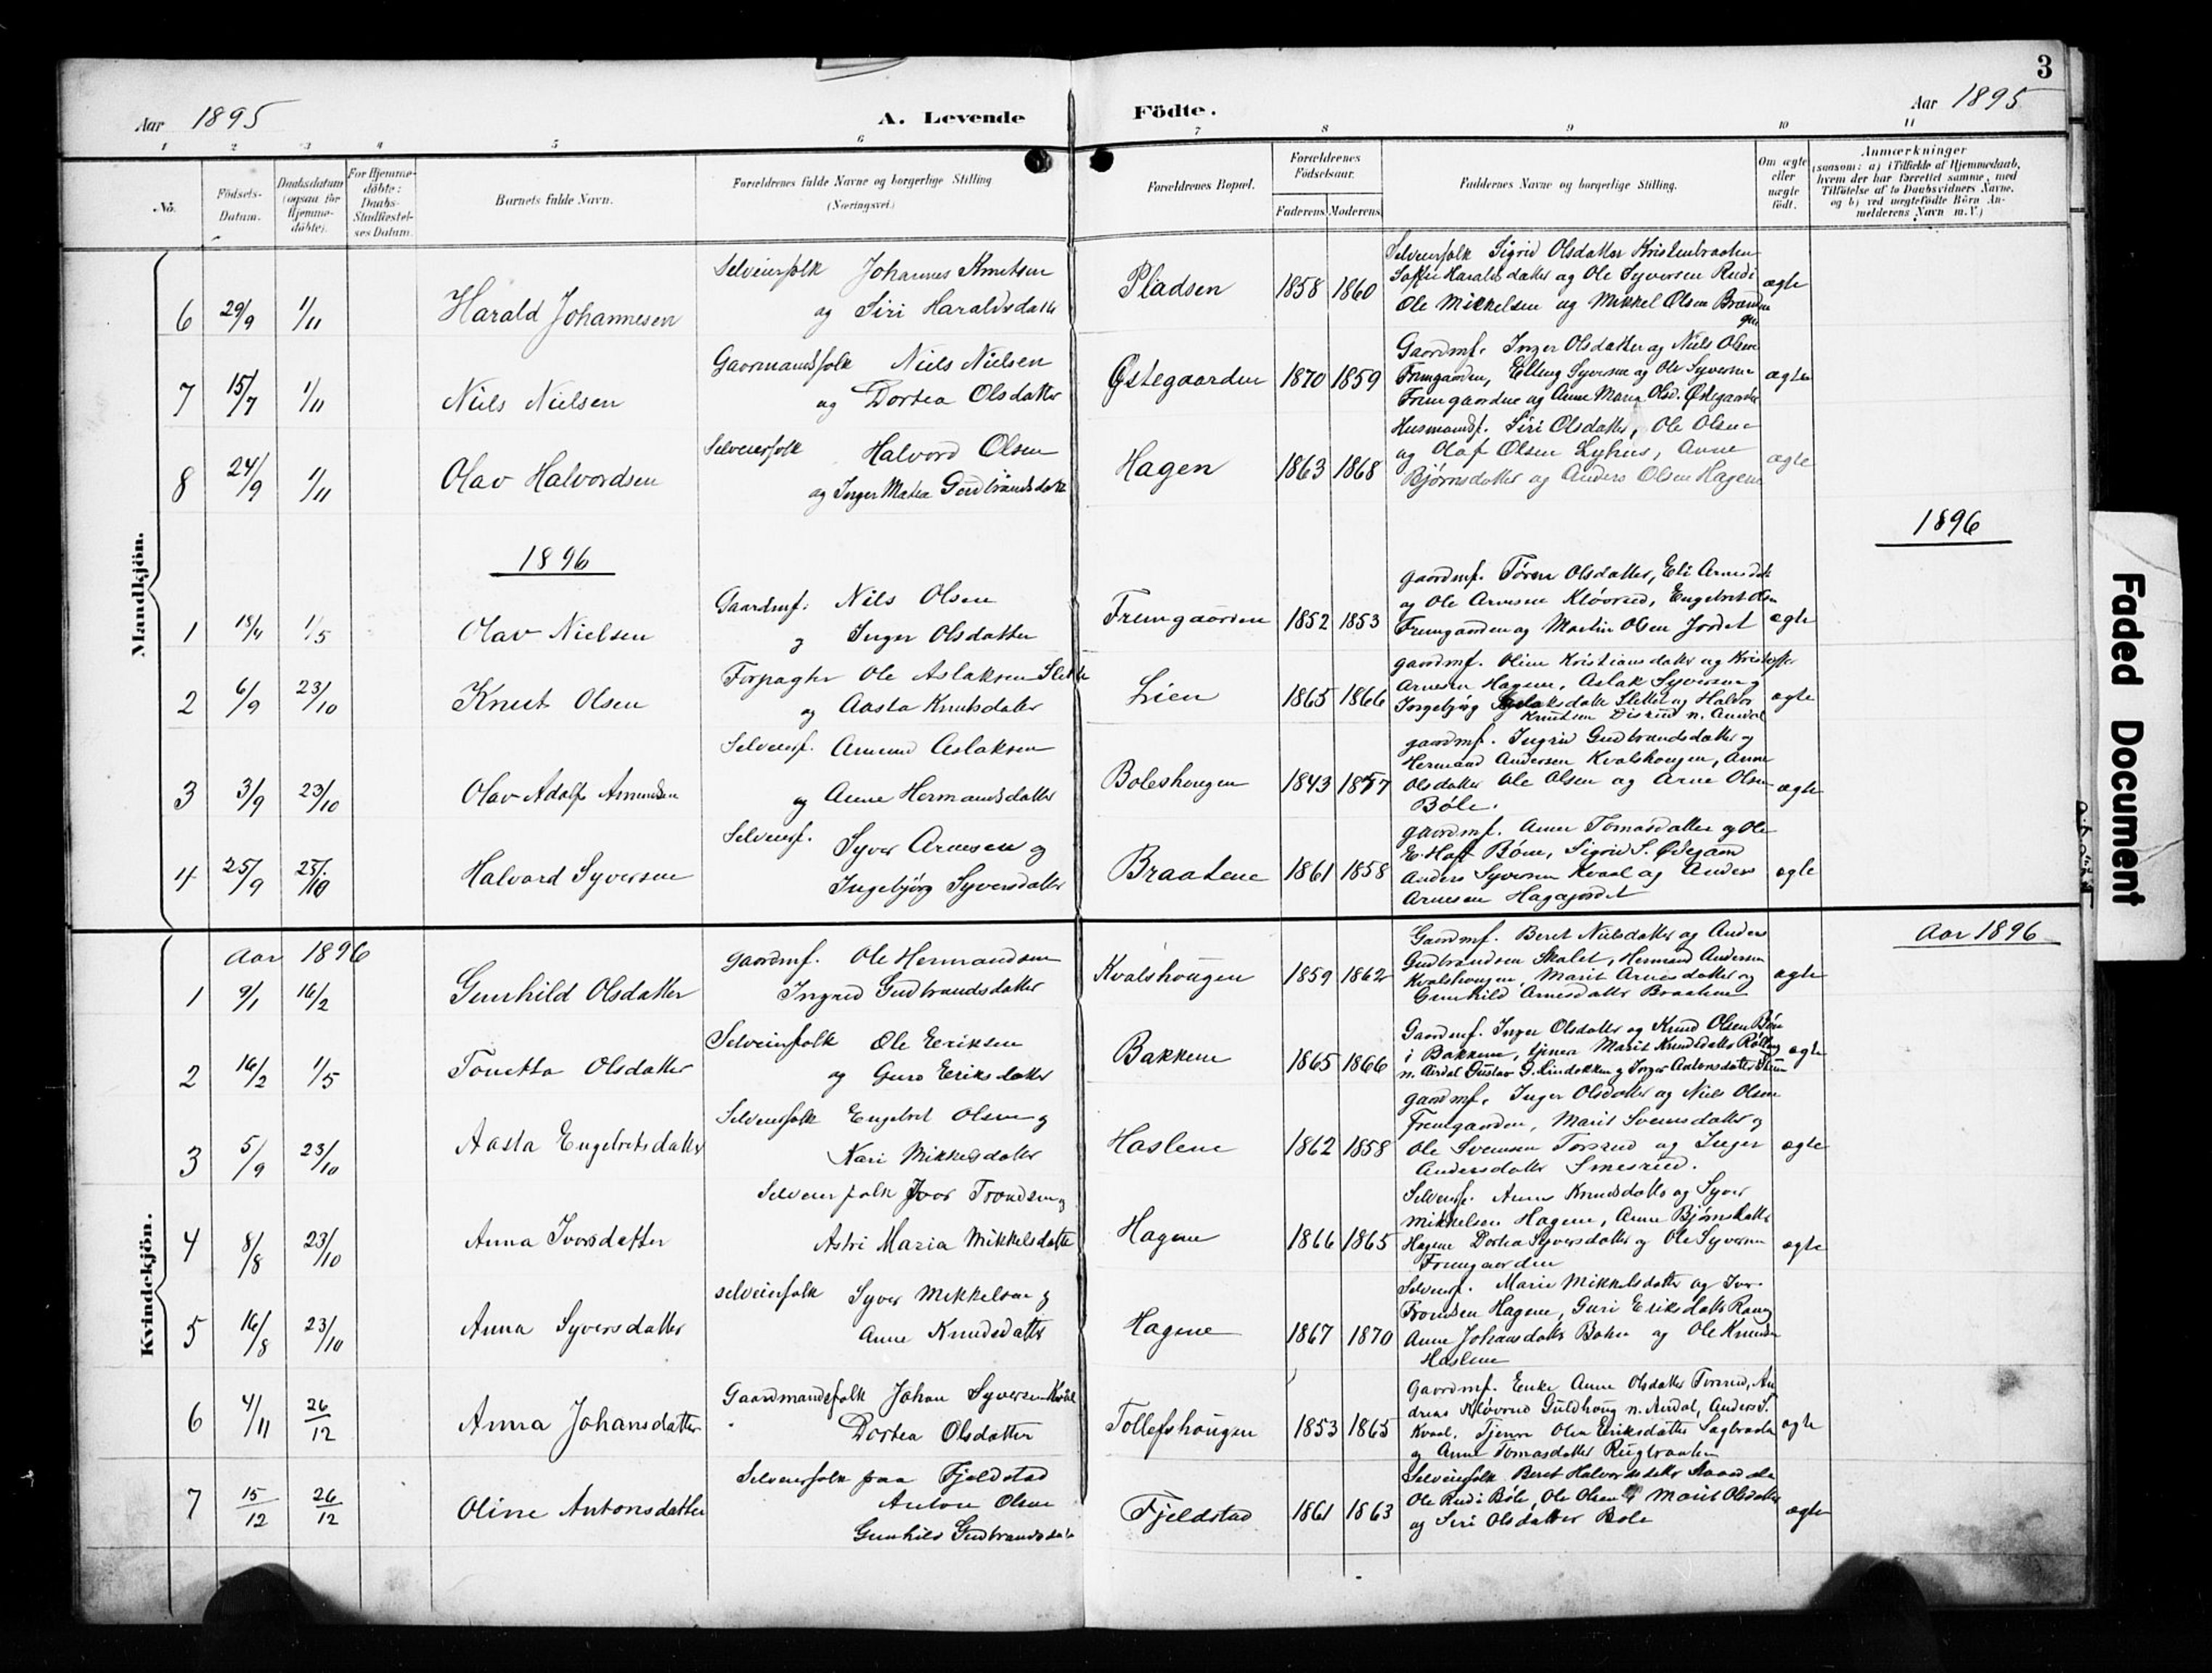 3
Aar 1895
A. Levende Födte.
Aar 1895
1 2 3 4 5 6 7 8 9 10 11
No.
Födsels-
Datum.
Daabsdatum
(ogsaa for
Hjemme-
döbte).
For Hjemme-
döbte:
Daabs-
Stadfæstel-
ses Datum.
Barnets fulde Navn.
Forældrenes fulde Navne og borgerlige Stilling
(Næringsvei.)
Forældrenes Bopæl.
Forældrenes
Födselsaar.
Faderens. Moderens.
Faddernes Navne og borgerlige Stilling.
Om ægte
eller
uægte
födt.
Anmærkninger
(saasom: a) i Tilfælde af Hjemmedaab,
hvem der har forrettet samme, med
Tilföielse af to Daabsvidners Navne,
og b) ved uægtefödte Börn An-
melderens Navn m. V.)
Mandkjön.
6 29/9 1/11 Harald Johannesen
Selveierfolk Johannes Knutsen
og Siri Haraldsdatter
Pladsen 1858 1860
Selveierfolk Sigrid Olsdatter Kristenbraaten
Haralds datter og Ole Syversen Rudi
Ole Mikkelsen og Mikkel Olsen
ægte
7 15/7 1/11 Niels Nielsen
Gaormandsfolk Niels Nielsen
og Dortea Olsdatter
Østegaarden 1870 1859
Gaordmf. Inger Olsdatter og Niels Olsen
Fremgaarden, Elling Syversen og Ole Syversen
Fremgaardene og Anne Maria Olsd. Østegaarden
ægte
8 24/9 1/11 Olav Halvordsen
Selveierfolk Halvord Olsen
og Inger Matea Gudbrandsdatt
Hagen 1863 1868
Husmandf. Siri Olsdatter, Ole Olsen
og Olaf Olsen Lyhus, Anne
Bjørnsdatter og Anders Olsen Hagene
ægte
1896
1896
1 18/4 1/5 Olav Nielsen
Gaardmf. Nils Olsen
og Inger Olsdatter
Fremgaarden 1852 1853
gaordmf. Tören Olsdatter, Eli Arnesdatt
og Ole Arnesen Klövrud, Engebret Olsen
Fremgaarden og Martin Olsen Jordet
ægte
2 6/9 23/10 Knut Olsen
Forpagter Ole Aslaksen Slette
og Aasta Knutsdatter
Lien 1865 1866
gaordmf. Oline Kristiansdatter og Kristoffer
Arnesen Hagene, Aslak Syversen og
Ingebjörg Aslaksdatter Slette og Halvor
Knutsen Disrud n. Aurdal
ægte
3 3/9 23/10 Olav Adolf Amundsen
Selveierf. Amund Aslaksen
og Anne Hermandsdatter
Boleshougen 1843 1857
gaordmf. Ingrid Gudbrandsdatter og
Hermand Andersen Kvalshougen, Anne
Olsdatter Ole Olsen og Arne Olsen
Böle.
ægte
4 25/9 25/10 Halvard Syversen
Selveierf. Syver Arnesen og
Ingebjörg Syversdatter
Braatene 1861 1858
gaordmf. Anne Tomasdatter og Ole
E. Haft Böen, Sigrid S. Ødegaard
Anders Syversen Kvaal og Anders
Arnesen Hagajordet
ægte
Kvindekjön.
Aar 1896
Aar 1896
1 9/1 16/2 Gunhild Olsdatter
gaardmf. Ole Hermandsen
Ingrid Gudbrandsdatter
Kvalshougen 1859 1862
Gaordmf. Beret Nielsdatter og Anders
Gudbrandsen Skalet, Hermand Andersen
Kvalshougen, Marit Arnesdatter og
Gunhild Arnesdatter Braatene
ægte
2 16/2 1/5 Tonetta Olsdatter
Selveierfolk Ole Eriksen
og Guro Eriksdatter
Bakkene 1865 1866
Gaordmf. Inger Olsdatter og Knud Olsen Böen
i Bakkene, tjener Marit Knudsdatter
n. Aurdal Gustav G. Lindokken og Inger Antonsdatter
ægte
3 5/9 23/10 Aasta Engebretsdatter
Selveierfolk Engebret Olsen og
Kari Mikkelsdatter
Haslene 1862 1858
gaordmf. Inger Olsdatter og Niels Olsen
Fremgaarden, Marit Svensdatter og
Ole Svensen Torsrud og Inger
Andersdatter Smesrud.
ægte
4 8/8 23/10 Anna Iversdatter
Selveierfolk Iver Trondsen og
Astri Maria Mikkelsdatte
Hagene 1866 1865
Selveierf. Anne Knudsdatter og Syver
Mikkelsen Hagene, Anne Bjørnsdatter
Hagene Dortea Syversdatter og Ole Syversen
Fremgaarden
ægte
5 16/8 23/10 Anna Syversdatter
selveierfolk Syver Mikkelsen og
Anne Knudsdatter
Hagene 1867 1870
Selveierf. Marie Mikkelsdatter og Iver
Trondsen Hagene, Guri Eriksdatter
Anne Johansdatter og Ole Knudsen
Haslene
ægte
6 4/11 26/12 Anna Johansdatter
Gaardmandsfolk Johan Syversen Kvål
Dortea Olsdatter
Tollefshougen 1853 1865
Gaordmf. Enke Anne Olsdatter Torsrud, An
dreas Klövrud Guldhoug n. Aurdal, Anders S.
Kvaal. Tjener Olea Eriksdatter Sagbraaten
og Anne Tomasdatter Rugbraaten
ægte
7 15/12 26/12 Oline Antonsdatter
Selveierfolk paa Fjeldstad
Anton Olsen
Gunhild Gudbrandsdat
Fjeldstad 1861 1863
Selveierfolk Beret Halvordsdatter
Ole Rudi Böle, Ole Olsen og Marit Olsdatter
og Siri Olsdatter Bole
ægte
Faded Document